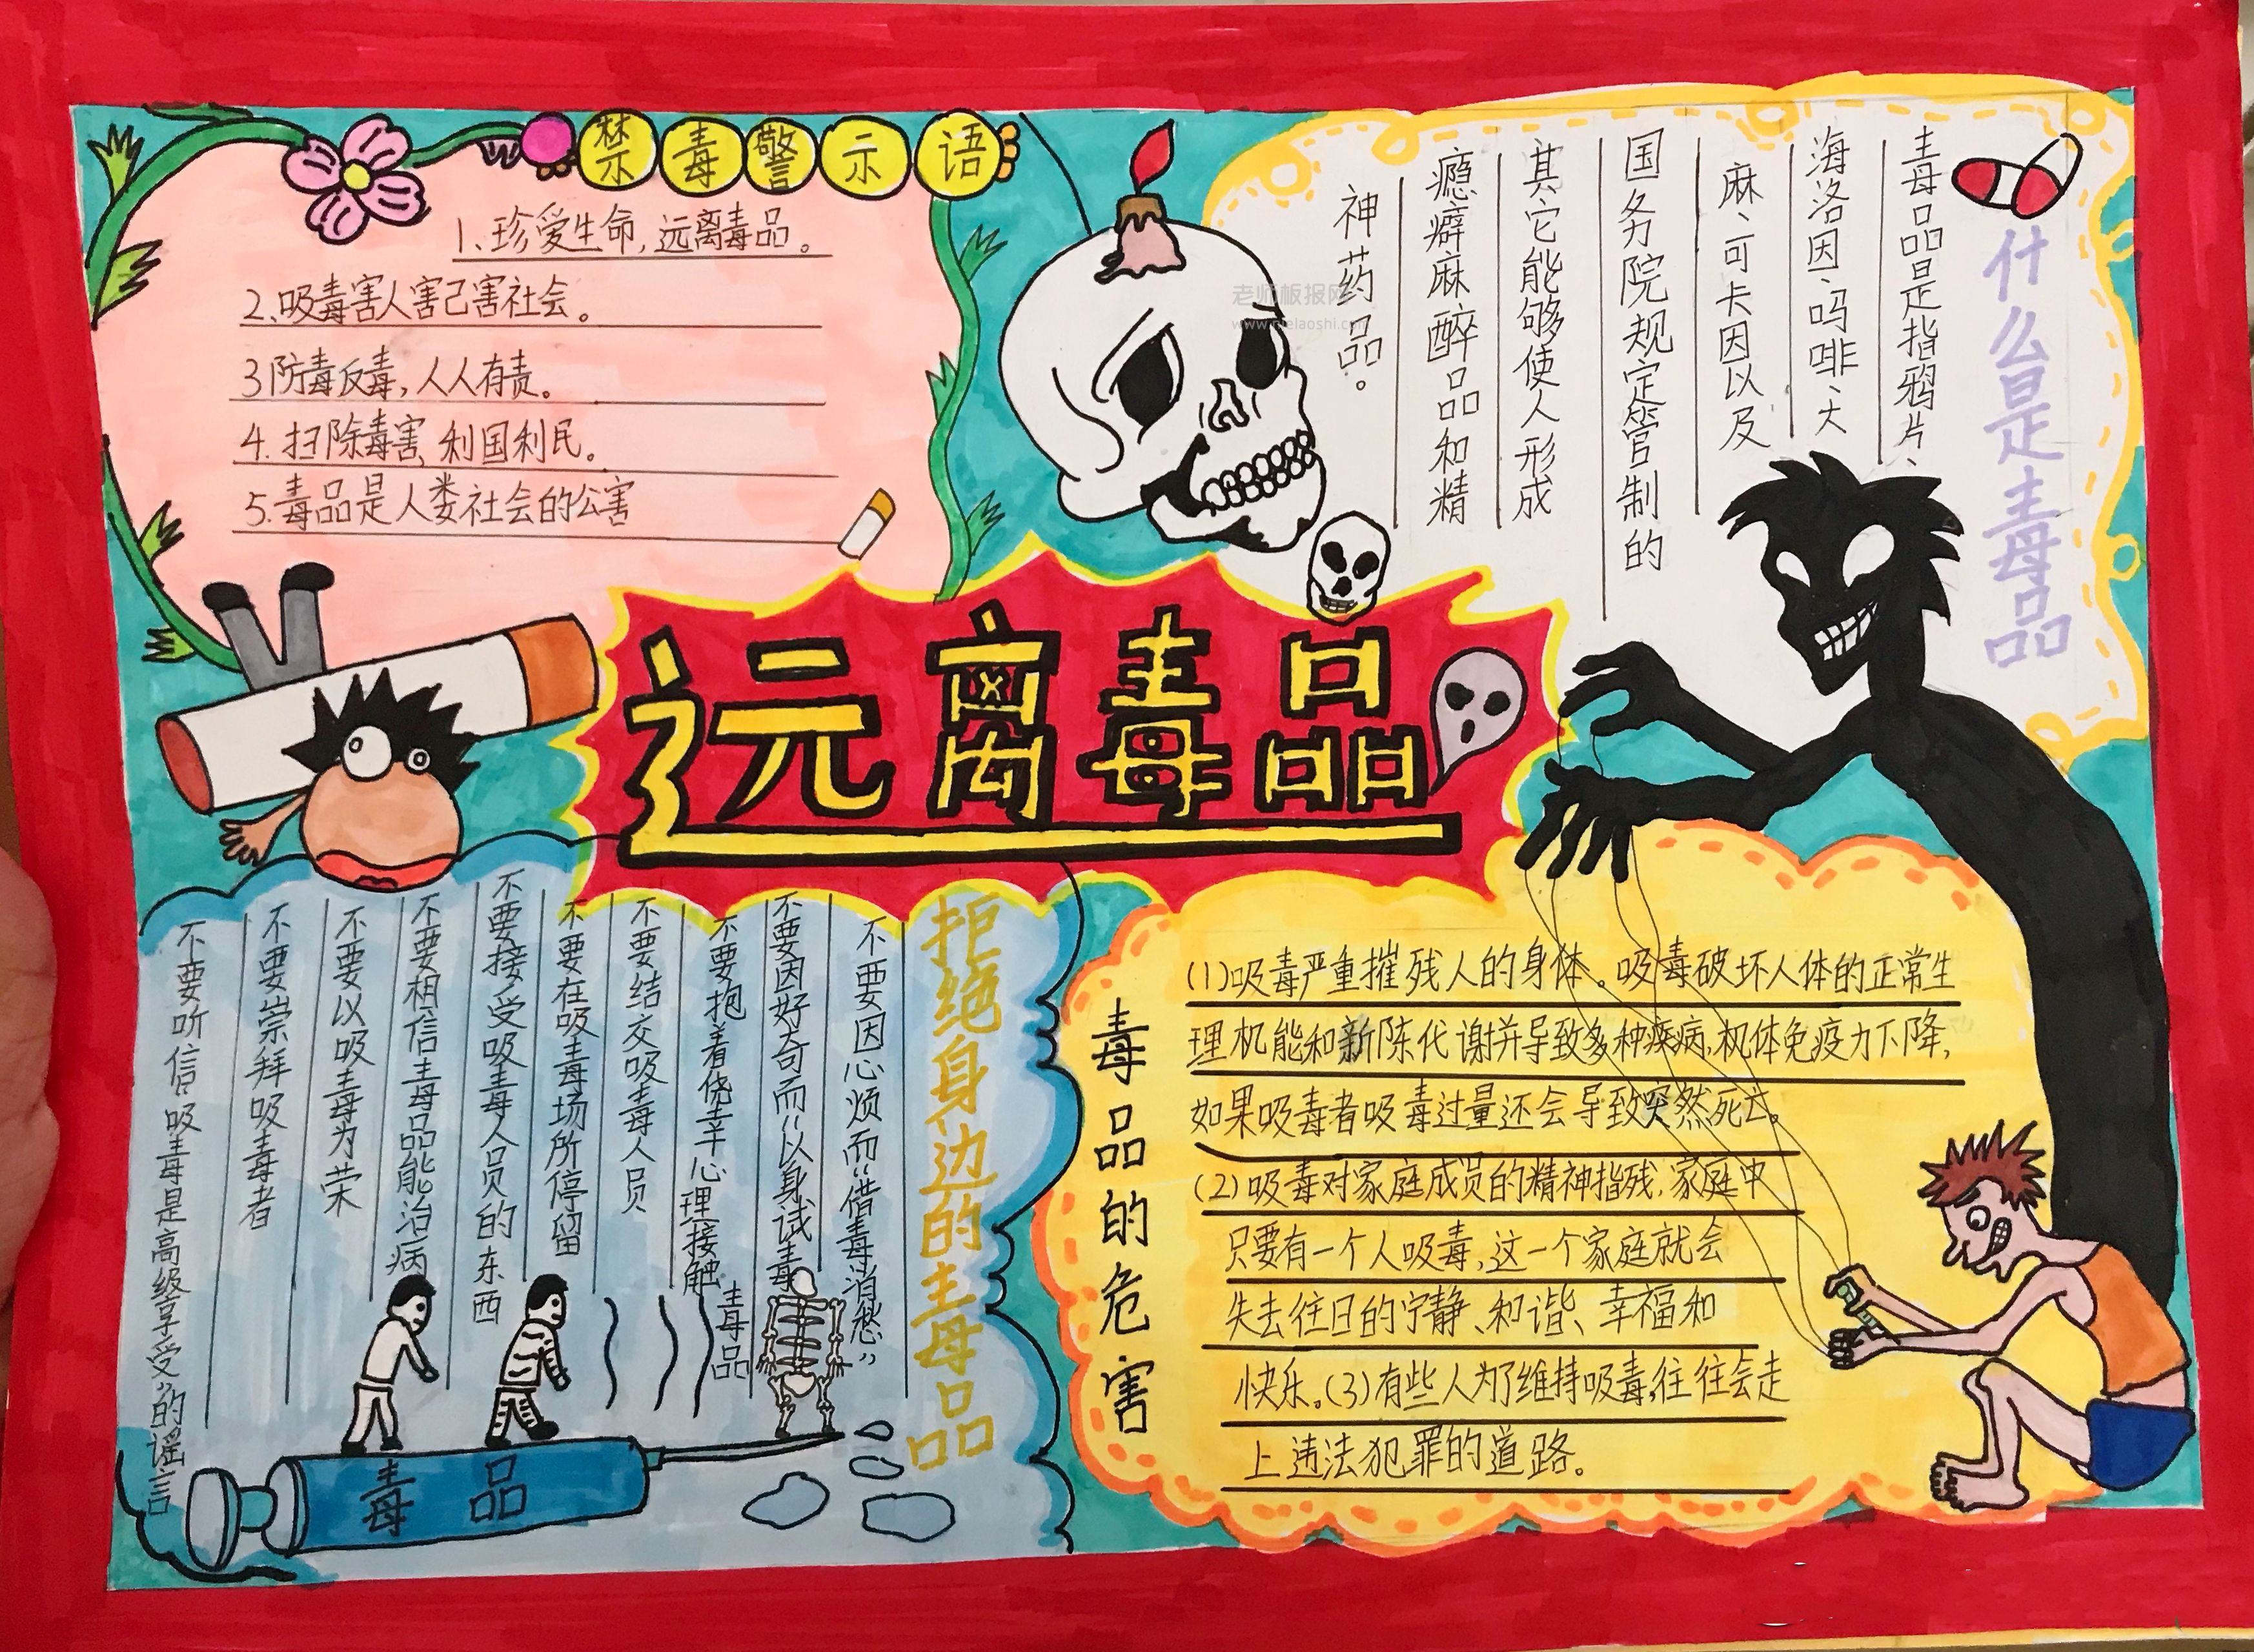 禁毒警示语
1、珍爱生命，远离毒品。
2、吸毒害人害己害社会。
3防毒反毒，人人有责。
4.扫除毒害，利国利民。
5.毒品是人娄社会的公害
老师板报网
什么是毒品
毒品是指鸦片、
海洛因、吗啡、大
麻、可卡因以及
国务院规定管制的
其它能够使人形成
瘾癖麻醉品和精
神药品。
远离毒品
拒绝身边的毒品
不要因心烦而“借毒消愁”
不要因好奇而“以身试毒
不要抱着侥幸心理接触毒品
不要结交吸毒人员
不要在吸毒场所停留
不要接受吸毒人员的东西
不要相信毒品能治病
不要以吸毒为荣
不要崇拜吸毒者
不要听信“吸毒是高级享受”的谣言
毒品
毒品的危害
(1)吸毒严重摧残人的身体。吸毒破坏人体的正常生
理机能和新陈代谢并导致多种疾病,机体免疫力下降,
如果吸毒者吸毒过量还会导致突然死亡。
(2)吸毒对家庭成员的精神指残,家庭中
只要有一个人吸毒,这一个家庭就会
失去往日的宁静、和谐、幸福和
快乐。(3)有些人为了维持吸毒,往往会走
上违法犯罪的道路。